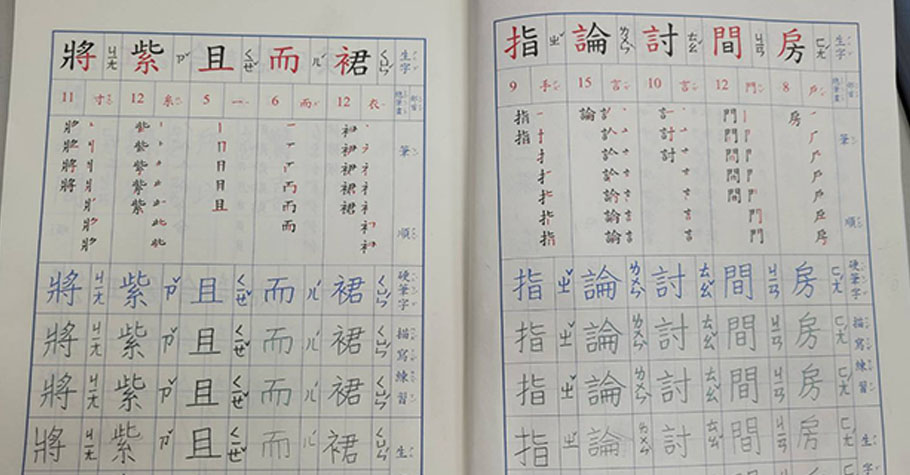 生字
部首
總筆畫
筆順
硬筆字描寫練習
生字
房 ㄈㄤˊ
戶 8
房
房 ㄈㄤˊ
房 ㄈㄤˊ
房 ㄈㄤˊ
房 ㄈㄤˊ
間 ㄐㄢ
門 12
間 ㄐㄢ
間 ㄐㄢ
間 ㄐㄢ
間 ㄐㄢ
討 ㄊㄠˇ
言 10
討
討 ㄊㄠˇ
討 ㄊㄠˇ
討 ㄊㄠˇ
討 ㄊㄠˇ
論 ㄌㄨㄣˋ
言 15
論
論 ㄌㄨㄣˋ
論 ㄌㄨㄣˋ
論 ㄌㄨㄣˋ
論 ㄌㄨㄣˋ
指 ㄓˇ
手 9
指
指
指 ㄓˇ
指 ㄓˇ
指 ㄓˇ
指 ㄓˇ
生字
部首
總筆畫
筆順
硬筆字描寫練習
生
裙 ㄑㄩㄣˊ
衣 12
裙
裙 ㄑㄩㄣˊ
裙 ㄑㄩㄣˊ
裙 ㄑㄩㄣˊ
裙 ㄑㄩㄣˊ
而 ㄦˊ
而 6
而
而 ㄦˊ
而 ㄦˊ
而 ㄦˊ
而 ㄦˊ
且 ㄑㄝˇ
一 5
且
且 ㄑㄝˇ
且 ㄑㄝˇ
且 ㄑㄝˇ
且 ㄑㄝˇ
紫 ㄗˇ
糸 12
紫
紫 ㄗˇ
紫 ㄗˇ
紫 ㄗˇ
紫 ㄗˇ
將 ㄐㄤ
寸 11
將
將 ㄐㄤ
將 ㄐㄤ
將 ㄐㄤ
將 ㄐㄤ